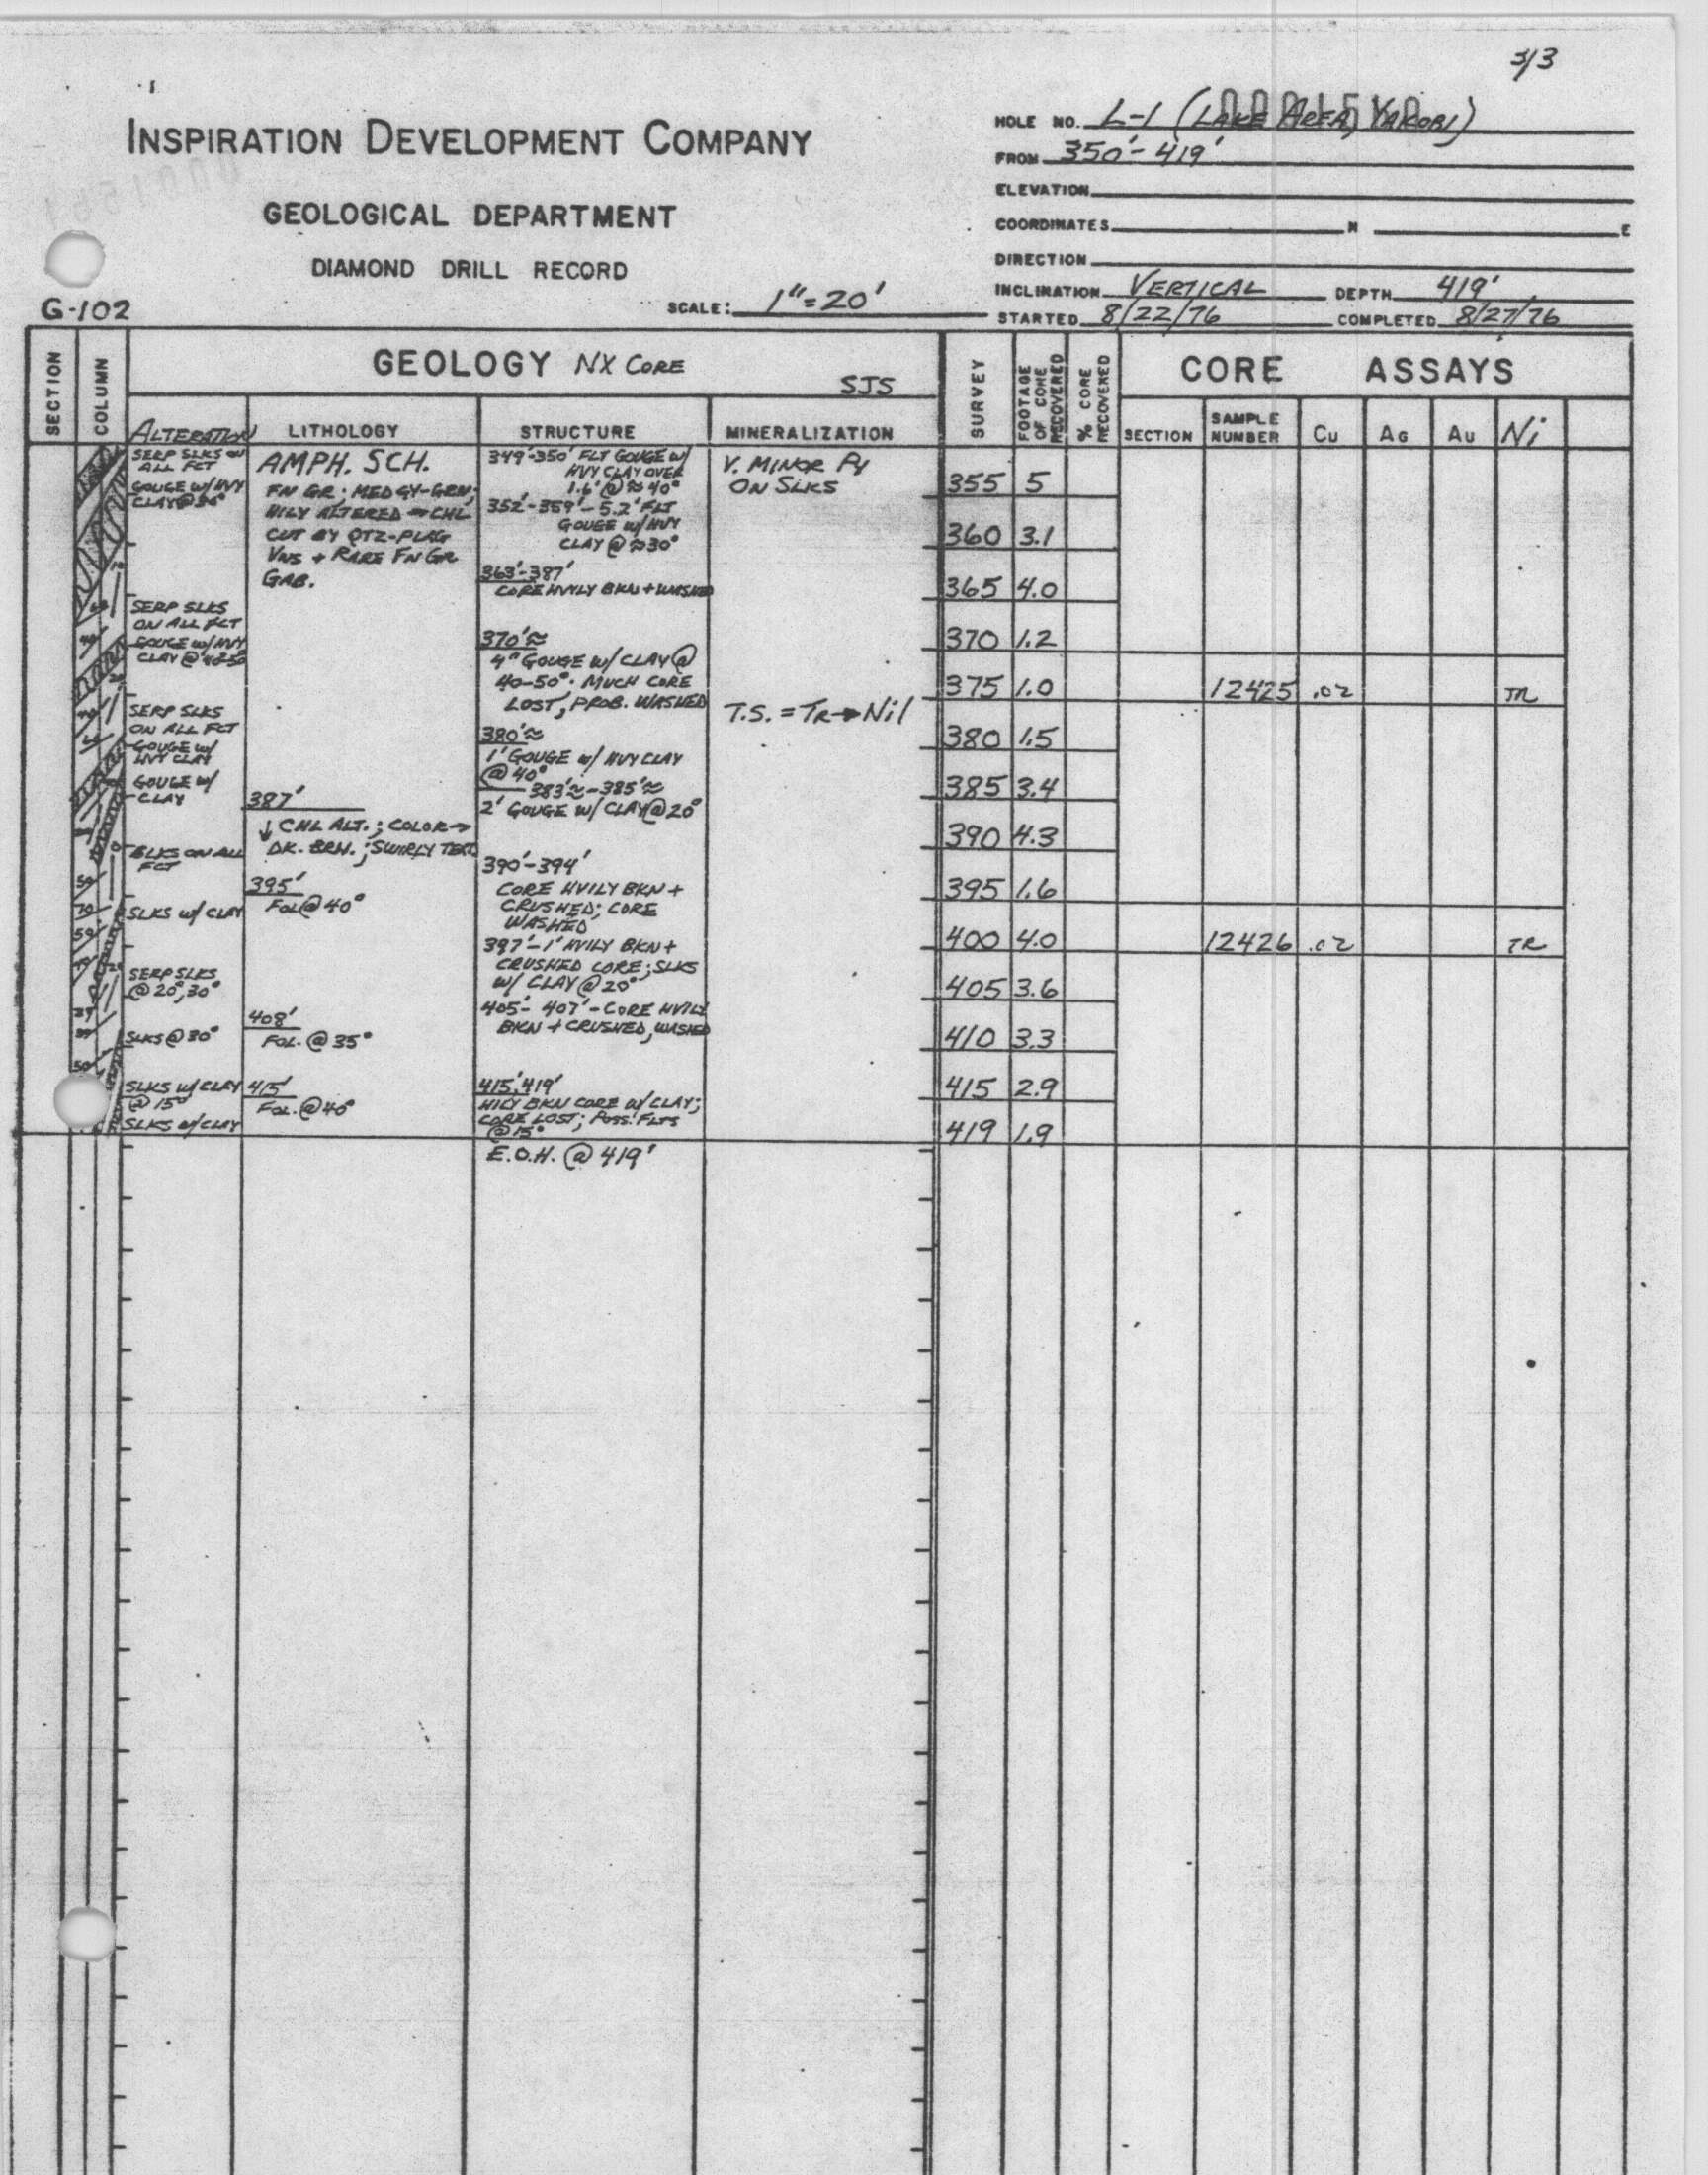 3/3
INSPIRATION DEVELOPMENT COMPANY
GEOLOGICAL DEPARTMENT
DIAMOND DRILL RECORD
G-102
SCALE: 1"=20'
HOLE NO. L-1 (LAKE AREA, YAKOBI)
FROM 350'-419'
ELEVATION
COORDINATES N E
DIRECTION
INCLINATION VERTICAL DEPTH 419'
STARTED 8/22/76 COMPLETED 8/27/76
SECTION
COLUMN
GEOLOGY NX CORE
SJS
ALTERATION
LITHOLOGY
STRUCTURE
MINERALIZATION
SURVEY
FOOTAGE OF CORE RECOVERED
% CORE RECOVERED
CORE ASSAYS
SECTION
SAMPLE NUMBER
Cu
AG
AU
Ni
SERP SLKS ON
ALL FCT
GOUGE W/HVY
CLAY@30°
SERP SLKS
ON ALL FCT
GOUGE W/HVY
CLAY@40-50
SERP SLKS
ON ALL FCT
GOUGE W/
HVY CLAY
GOUGE W/
CLAY
SLKS ON ALL
FCT
SLKS W/ CLAY
SERP SLKS
@ 20°,30°
SLKS@30°
SLKS W/ CLAY
@ 15°
SLKS W/CLAY
AMPH. SCH.
FN GR; MED GY-GRN;
HILY ALTERED → CHL
CUT BY QTZ-PLAG
VNS + RARE FN GR
GAB.
387'
↓ CHL ALT.; COLOR→
DK. BRN.; SWIRLY TEXT
395'
FOL@40°
408'
FOL. @ 35°
415'
FOL. @40°
349'-350' FLT GOUGE W/
HVY CLAY OVER
1.6' @ ≈ 40°
352'-359'- 5.2' FLT
GOUGE W/HVY
CLAY @ ≈30°
363'-387'
CORE HVILY BKN + WASHED
370'≈
4" GOUGE W/ CLAY @
40-50°. MUCH CORE
LOST, PROB. WASHED
380'≈
1' GOUGE W/ HVY CLAY
@ 40°
383'≈-385'≈
2' GOUGE W/ CLAY@20°
390'-394'
CORE HVILY BKN +
CRUSHED; CORE
WASHED
397'-1' HVILY BKN +
CRUSHED CORE; SLKS
W/ CLAY @ 20°
405'- 407'- CORE HVILY
BKN + CRUSHED, WASHED
415'-419'
HILY BKN CORE W/ CLAY;
CORE LOST; POSS. FLTS
@ 15°
E.O.H. @ 419'
V. MINOR Py
ON SLKS
T.S. = TR→Nil
355 5
360 3.1
365 4.0
370 1.2
375 1.0 12425 .02 TR
380 1.5
385 3.4
390 4.3
395 1.6
400 4.0 12426 .02 TR
405 3.6
410 3.3
415 2.9
419 1.9